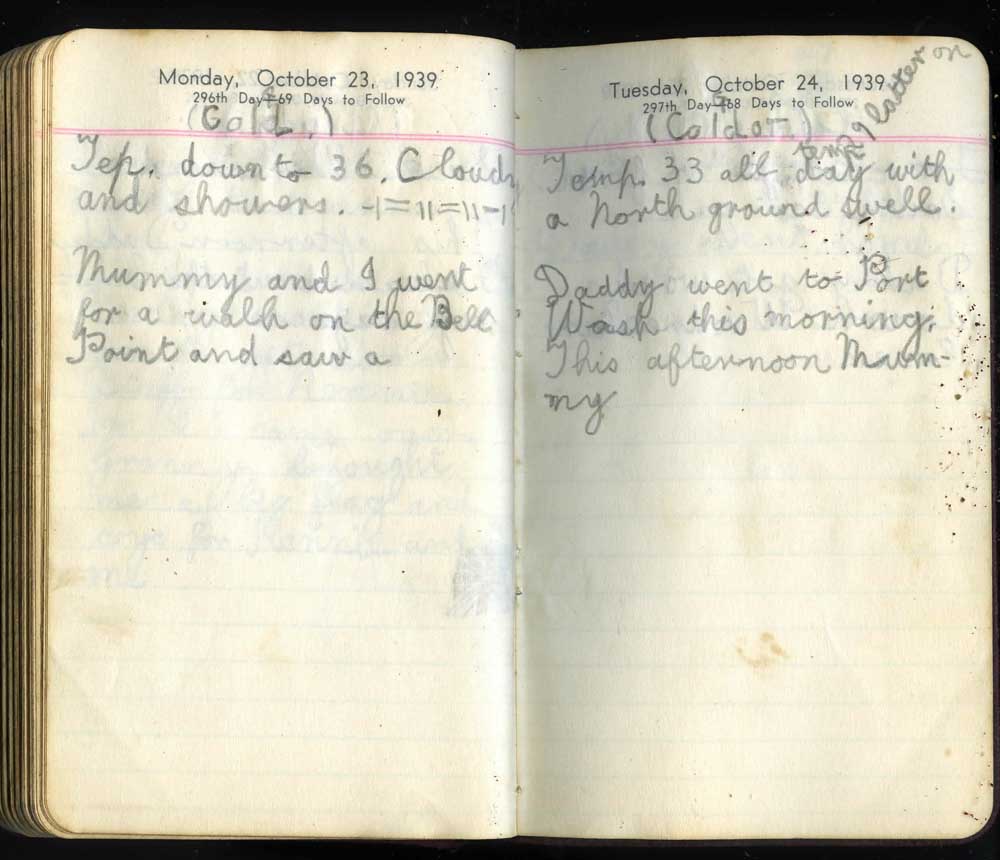 Monday, October 23, 1939
296th Day—69 Days to Follow
(Cold.)
Tep. down to 36. Cloudy
and showers. -1=11=11-1
Mummy and I went
for a walk on the Bell
Point and saw a
Tuesday, October 24, 1939
297th Day—68 Days to Follow
(Coldor.)
temp latter on
Temp. 33 all day with
a North ground swell.
Daddy went to Port
Wash this morning.
This afternoon Mum-
my